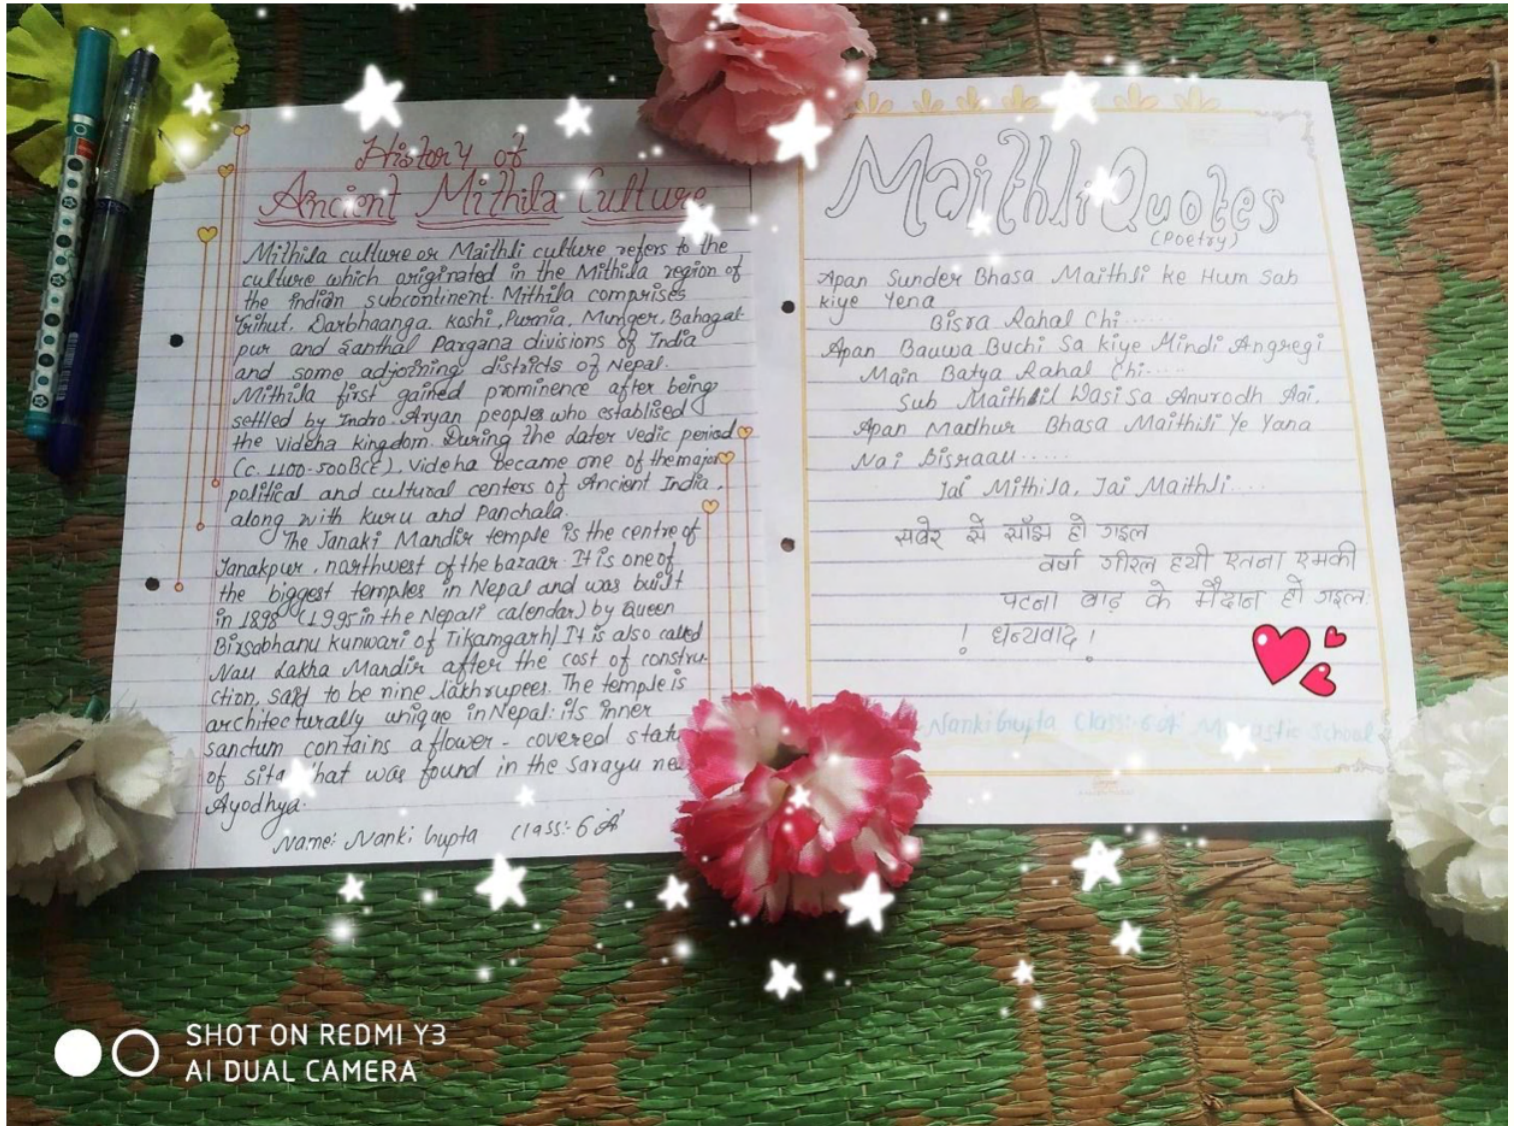 History of
Ancient Mithila Culture
Mithila culture or Maithli culture refers to the
culture which originated in the Mithila region of
the indian subcontinent. Mithila comprises
Trihut, Darbhaanga, Koshi, Purnia, Munger, Bahagal-
pur and Santhal Pargana divisions of India
and some adjoining districts of Nepal.
Mithila first gained prominence after being
settled by Indro-Aryan peoples who establised
the videha kingdom. During the later vedic period
(c. 1100-500BCE), videha became one of the major
political and cultural centers of Ancient India,
along with Kuru and Panchala.
The Janaki Mandir temple is the centre of
Janakpur, northwest of the bazaar. It is one of
the biggest temples in Nepal and was built
in 1898 (1995 in the Nepali calendar) by Queen
Birsabhanu Kunwari of Tikamgarh/ It is also called
Nau Lakha Mandir after the cost of constru-
ction, said to be nine lakh rupees. The temple is
architecturally unique in Nepal: its inner
sanctum contains a flower - covered
of sita that was found in the Sarayu
Ayodhya.
Name: Nanki Gupta Class:- 6 'A'
Maithli Quotes
(Poetry)
Apan Sunder Bhasa Maithli ke Hum Sab
kiye Yena
Bisra Rahal Chi......
Apan Bauwa Buchi Sa kiye Mindi Angregi
Main Batya Rahal Chi.....
Sub Maithil Wasi sa Anurodh Aai.
Apan Madhur Bhasa Maithili Ye Yana
Nai Bisraau......
Jai Mithila, Jai Maithli....
सवेर से साँझ हो गइल
वर्षा गीरल हयी एतना एमकी
पटना बाढ़ के मैदान हो गइल.
! धन्यवाद !
Nanki Gupta Class:- 6 'A' School
SHOT ON REDMI Y3
AI DUAL CAMERA